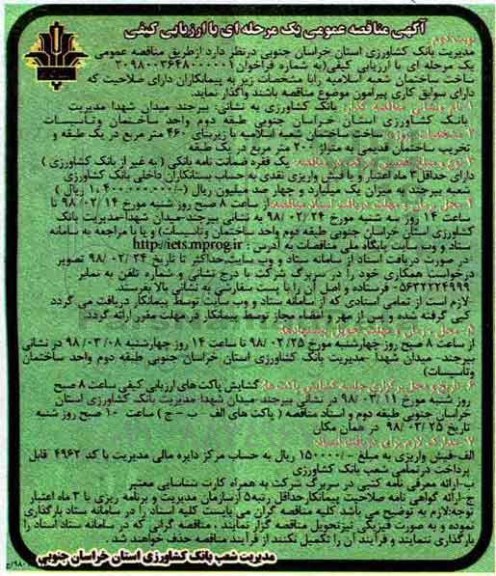 آگهی مناقصه عمومی یک مرحله ای با ارزیابی کیفی
نوبت دوم
مدیریت بانک کشاورزی استان خراسان جنوبی درنظر دارد ازطریق مناقصه عمومی
یک مرحله ای با ارزیابی کیفی(به شماره فراخوان ۲۰۹۸۰۰۳۶۴۸۰۰۰۰۰۱
ساخت ساختمان شعبه اسلامیه رابا مشخصات زیر به پیمانکاران دارای صلاحیت که
دارای سوابق کاری پیرامون موضوع مناقصه باشند واگذار نمایند.
۱-نام ونشانی مناقصه گذار: بانک کشاورزی به نشانی: بیرجند میدان شهدا مدیریت
بانک کشاورزی استان خراسان جنوبی طبقه دوم واحد ساختمان وتاسیسات
۲-مشخصات پروژه: ساخت ساختمان شعبه اسلامیه با زیربنای ۴۶۰ متر مربع در یک طبقه و
تخریب ساختمان قدیمی به متراژ ۲۰۰ متر مربع در یک طبقه
یک فقره ضمانت نامه بانکی ( به غیر از بانک کشاورزی )
دارای حداقل۳ ماه اعتبار و یا فیش واریزی نقدی به حساب بستانکاران داخلی بانک کشاورزی
شعبه بیرجند به میزان یک میلیارد و چهار صد میلیون ریال (-/۱،۴۰۰،۰۰۰،۰۰۰ ریال )
۴-محل، زمان و مهلت دریافت اسناد مناقصه: از ساعت ۸ صبح روز شنبه مورخ ۹۸/۰۲/۱۴ تا
ساعت ۱۴ روز سه شنبه مورخ ۹۸/۰۲/۲۴ به نشانی بیرجند-میدان شهدا-مدیریت بانک
کشاورزی استان خراسان جنوبی طبقه دوم واحد ساختمان وتاسیسات) و یا با مراجعه به سامانه
ستاد و وب سایت پایگاه ملی مناقصات به آدرس : http://iets.mprog.ir
در صورت دریافت اسناد از سامانه ستاد و وب سایت،حداکثر تا تاریخ ۹۸/۰۲/۲۴ تصویر
درخواست همکاری خود را در سربرگ شرکت با درج نشانی و شماره تلفن به نمابر
۰۵۶۳۲۲۲۴۹۹۹ فرستاده و اصل آن را با پست سفارشی به نشانی بالا بفرستند.
-لازم است از تمامی اسنادی که از سامانه ستاد و وب سایت توسط پیمانکار دریافت می گردد
کپی گرفته شده و پس از مهر و امضاء مجاز توسط پیمانکار در مهلت مقرر ارائه گردد.
۵- محل ، زمان و مهلت تحویل پیشنهادها:
از ساعت ۸ صبح روز چهارشنبه مورخ ۹۸/۰۲/۲۵ تا ساعت ۱۴ روز چهارشنبه ۹۸/۰۳/۰۸ در نشانی
بیرجند- میدان شهدا -مدیریت بانک کشاورزی استان خراسان جنوبی طبقه دوم واحد ساختمان
وتاسیسات)
۶-تاریخ و محل برگزاری جلسه گشایش پاکت ها: گشایش پاکت های ارزیابی کیفی ساعت ۸ صبح
روز شنبه مورخ ۹۸/۰۳/۱۱ در نشانی بیرجند میدان شهدا مدیریت بانک کشاورزی استان
خراسان جنوبی طبقه دوم و اسناد مناقصه ( پاکت های الف – ب – ج ) ساعت ۱۰ صبح روز شنبه
تاریخ ۹۸/۰۳/۲۵ در همان مکان
۷-مدارک لازم برای دریافت اسناد:
الف-فیش واریزی به مبلغ -/۱۵۰۰۰۰۰ ریال به حساب مرکز دایره مالی مدیریت با کد ۴۹۶۲ قابل
پرداخت درتمامی شعب بانک کشاورزی
ب-ارائه معرفی نامه کتبی در سربرگ شرکت به همراه کارت شناسایی معتبر
ج-ارائه گواهی نامه صلاحیت پیمانکارحداقل رتبه۵ ازسازمان مدیریت و برنامه ریزی با ۳ ماه اعتبار
توجه:لازم به توضیح می باشد کلیه مناقصه گران می بایست کلیه اسناد را در سامانه ستاد بارگذاری
نموده و به صورت فیزیکی نیزتحویل مناقصه گزار نمایند ، مناقصه گرانی که در سامانه ستاد اسناد را
بارگذاری ننمایند و فرآیند آن را تکمیل نکنند از فرآیند مناقصه حذف خواهند شد .
مدیریت شعب بانک کشاورزی استان خراسان جنوبی